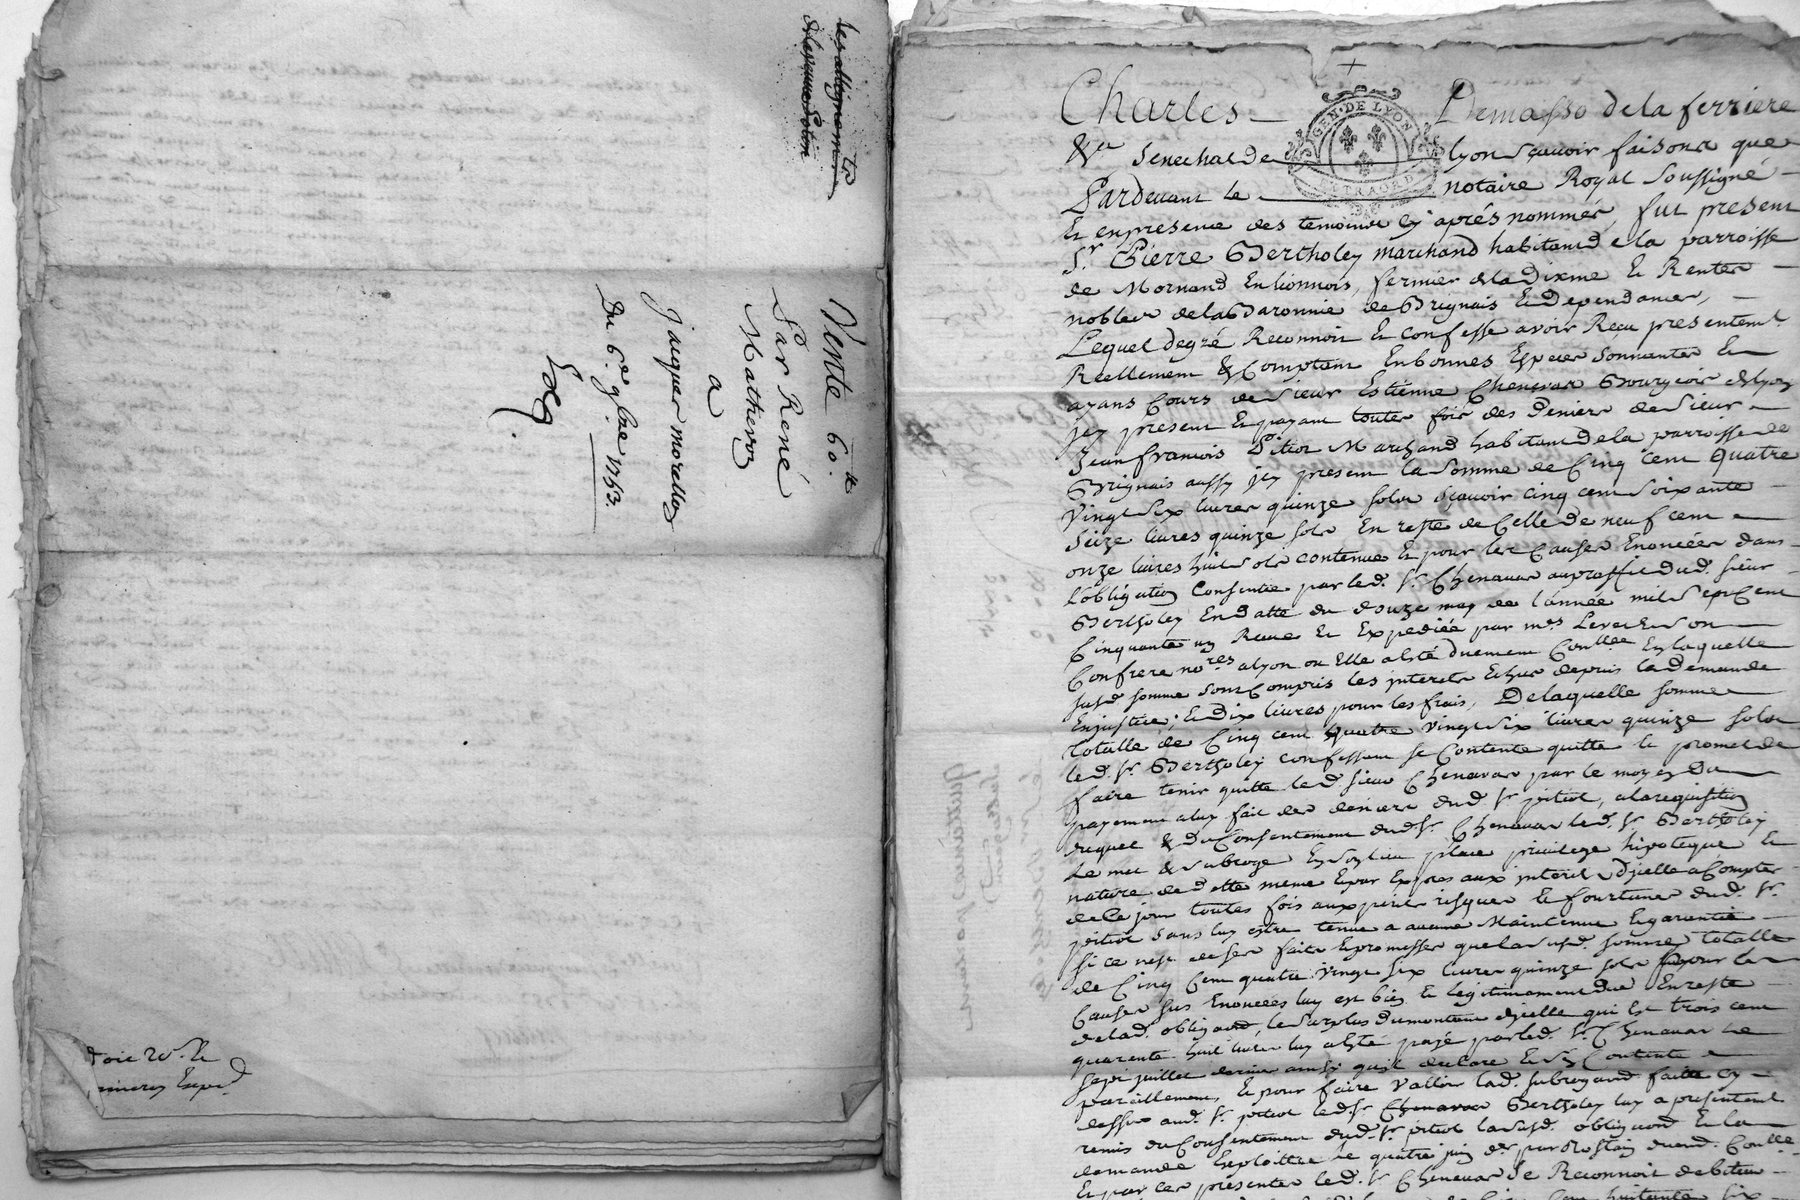 Vente 60.tt
Par René
Mathevon
a
Jacques morellon
Du 6e 9bre 1753.
doit
GEN. DE LYON
EXTRAORD
Charles Demasso de la ferriere
Senechal de lyon Scavoir faisons que
Pardevant le notaire Royal Soussigné
Et en presence des temoins cy aprés nommés, fut present
Sr. Pierre Bertholey marchand habitant de la parroisse
de Mornand En lionnois, fermier de la Dixme Et Rentes
nobles de la Baronnie de Brignais Et Dependances,
Lequel de gré Reconnoit Et confesse avoir Recu presentemt.
Reellement & Comptant En bonnes Especes Sonnantes Et
ayans Cours de Sieur Estienne Chenavas Bourgeois de lyon
jcy present Et payant toutes fois des Deniers de Sieur
Jean francois Pitiot Marchand habitant de la parroisse de
Brignais aussy jcy present la Somme de Cinq cent Quatre
Vingt Six livres quinze sols Scavoir cinq cent Soixante
Seize livres quinze sols En reste de Celle de neuf cent
onze livres huit sols contenue Et pour les Causes Enoncées dans
l'obligation Consentie par led. Sr. Chenavas au proffit dud. Sieur
Bertholey En Datte du douze may de l'année mil Sept Cent
Cinquante un Receue Et Expediée par mes Levet Et Son
Confrere nores a lyon ou Elle a esté duement Conllée En laquelle
susd. somme sont Compris les jnterets Echus depuis la demande
En justice; Et Dix livres pour les frais, De laquelle somme
totalle de Cinq cent quatre Vingt Six livres quinze sols
led. Sr. Bertholey confessant se Contente quitte Et promet de
faire tenir quitte led. Sieur Chenavas par le moyen du
payement a luy fait des deniers dud. Sr. pitiot, a la requisition
duquel & du Consentement dud. Sr. Chenavas led. Sr. Bertholey
Le met & Subroge En Son lieu place privilege hipoteque Et
nature de Dette meme Et par Expres aux jnterets d'jcelle a Compter
de Ce jour toutes fois aux perils risques Et fourtunes dud. Sr.
pitiot Sans luy estre tenu a aucune Maintenue Et garentie
Si ce nest de ses faits Et promesses que la Susd. Somme totalle
de Cinq Cent quatre vingt Six livres quinze sols pour les
Causes sus Enoncées luy est bien Et legitimement due En reste
de lad. obligaon, le Surplus du montant d'jcelle qui Est trois cent
quarente huit livres luy a esté payé par led. Sr. Chenavas le
sept juillet dernier ainsi quil declare Et s'En Contente
pareillement, Et pour faire Valloir lad. Subrogaon faite cy
dessus aud. Sr. pitiot led. Sr. Bertholey luy a presentemt
remis du Consentement dud. Sr. pitiot la Susd. obligaon Et la
demande Exploittée le quatre juin
Et par ces présentes led. Sr. Chenavas Se Reconnoit debiteur